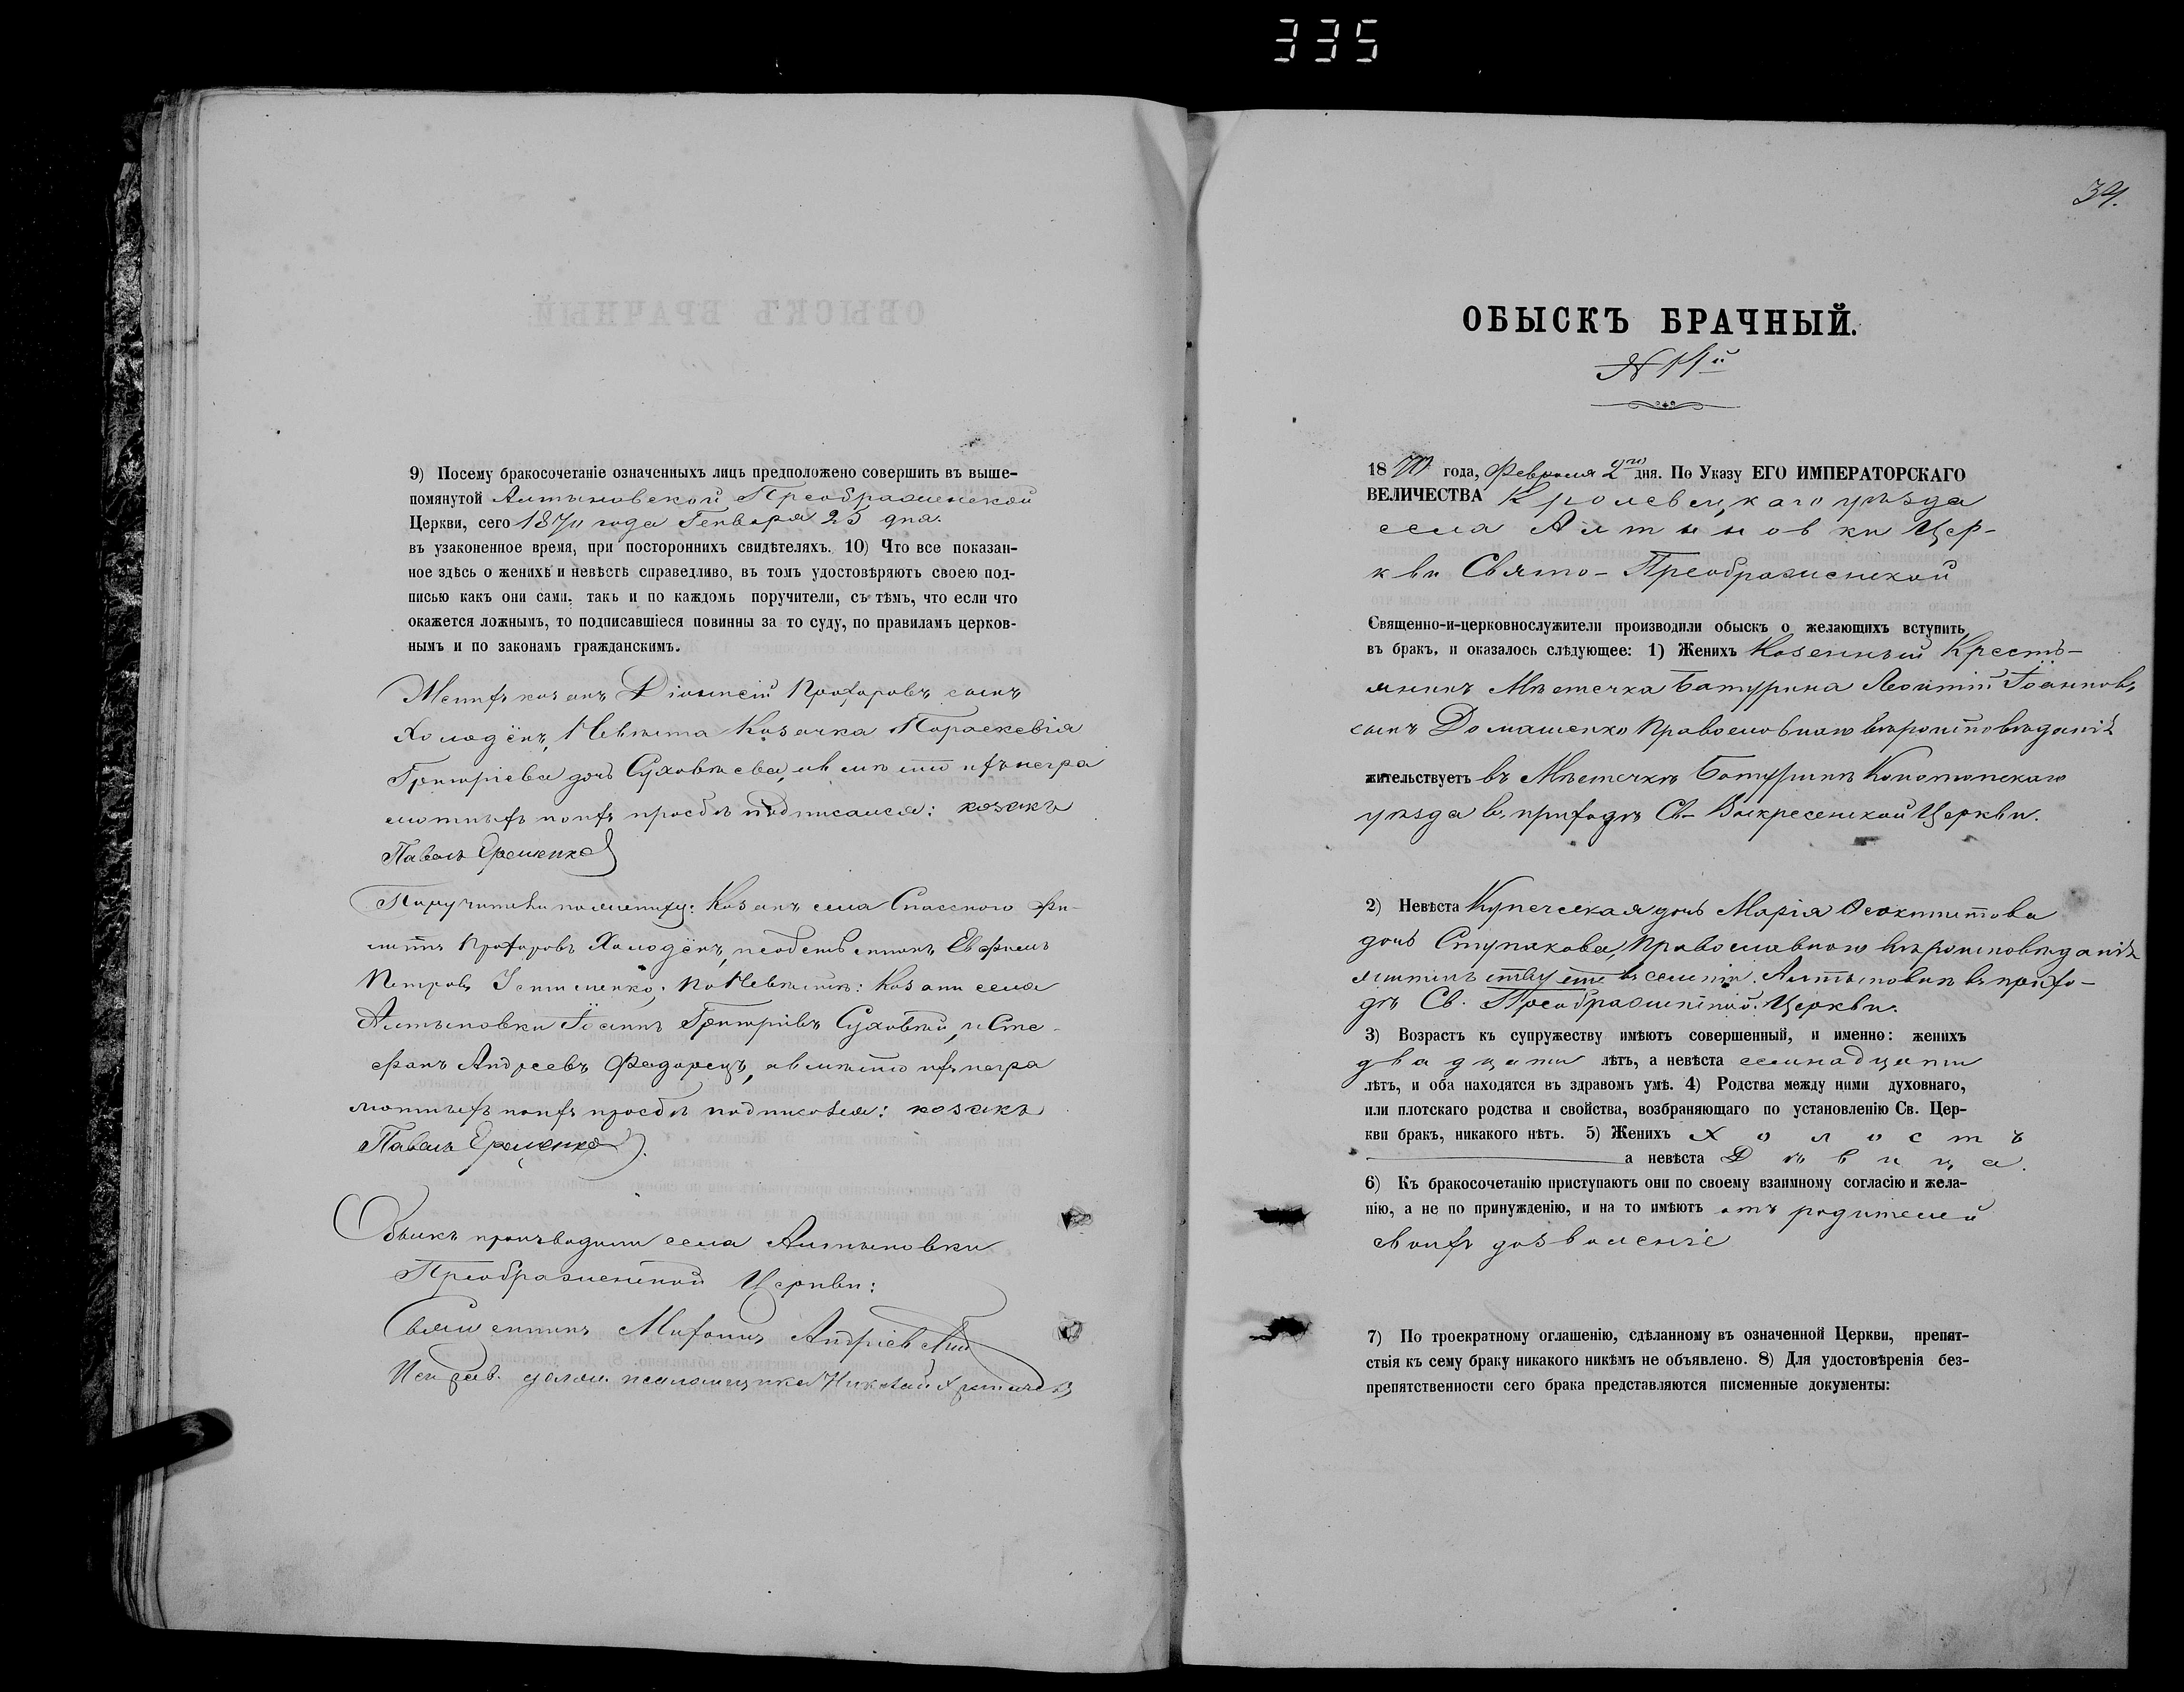 335
9) Посему бракосочетаніе означенныхъ лицъ предположено совершить въ выше-
помянутой Алтыновской Преображенской
Церкви, сего 1870 года Генваря 25 дня.
въ узаконенное время, при постороннихъ свидѣтеляхъ. 10) Что все показан-
ное здѣсь о женихѣ и невѣстѣ справедливо, въ томъ удостовѣряютъ своею под-
писью какъ они сами, такъ и по каждомъ поручители, съ тѣмъ, что если что
окажется ложнымъ, то подписавшіеся повинны за то суду, по правиламъ церков-
нымъ и по законамъ гражданскимъ.
Женихъ козакъ Діонисій Прохоровъ сынъ
Холодёнъ, Невѣста Козачка Параскевія
Григоріева дочь Суховѣева, а вмѣсто ихъ негра
мотныхъ поихъ просбѣ подписался: козакъ
Павелъ Еременко
Поручители по женихѣ: Козакъ села Спасского Фи-
липпъ Прохоровъ Холодёнъ, и собственникъ Евфимъ
Петровъ; по Невѣстѣ: Козаки села
Алтыновки Іоаннъ Григоріевъ Суховѣй, и Сте-
фанъ Андреевъ Федорецъ, а вмѣсто ихъ негра
мотныхъ поихъ просбѣ подписался: козакъ
Павелъ Еременко.
Обыскъ производили села Алтыновки
Преображенской Церкви:
Священникъ Андріевскій
Исправ. должн. псаломщика Николай
34.
ОБЫСКЪ БРАЧНЫЙ.
N 11й
1870 года, Февраля 2го дня. По Указу ЕГО ИМПЕРАТОРСКАГО
ВЕЛИЧЕСТВА Кролевецкаго уѣзда
села Алтыновки Цер-
кви Свято-Преображенской
Священно-и-церковнослужители производили обыскъ о желающихъ вступить
въ бракъ, и оказалось слѣдующее: 1) Женихъ Козенный Кресть-
янинъ Мѣстечка Батурина Леонтій Іоанновъ
сынъ Домашенко Православнаго вѣроисповѣданія
жительствуетъ въ Мѣстечкѣ Батуринѣ Конотопскаго
уѣзда въ приходѣ Св- Воскресенской Церкви.
2) Невѣста Купеческая дочь Марія Феоктистова
дочь Ступакова, Православнаго вѣроисповѣданія
жительствуетъ въ селѣ Алтыновкѣ въ прихо-
дѣ Св. Преображенской Церкви.
3) Возрастъ къ супружеству имѣютъ совершенный, и именно: женихъ
двадцати лѣтъ, а невѣста семнадцати
лѣтъ, и оба находятся въ здравомъ умѣ. 4) Родства между ними духовнаго,
или плотскаго родства и свойства, возбраняющаго по установленію Св. Цер-
кви бракъ, никакого нѣтъ. 5) Женихъ холостъ
а невѣста Дѣвица.
6) Къ бракосочетанію приступаютъ они по своему взаимному согласію и жела-
нію, а не по принужденію, и на то имѣютъ отъ родителей
своихъ дозволеніе
7) По троекратному оглашенію, сдѣланному въ означенной Церкви, препят-
ствія къ сему браку никакого никѣмъ не объявлено. 8) Для удостовѣренія без-
препятственности сего брака представляются писменные документы: